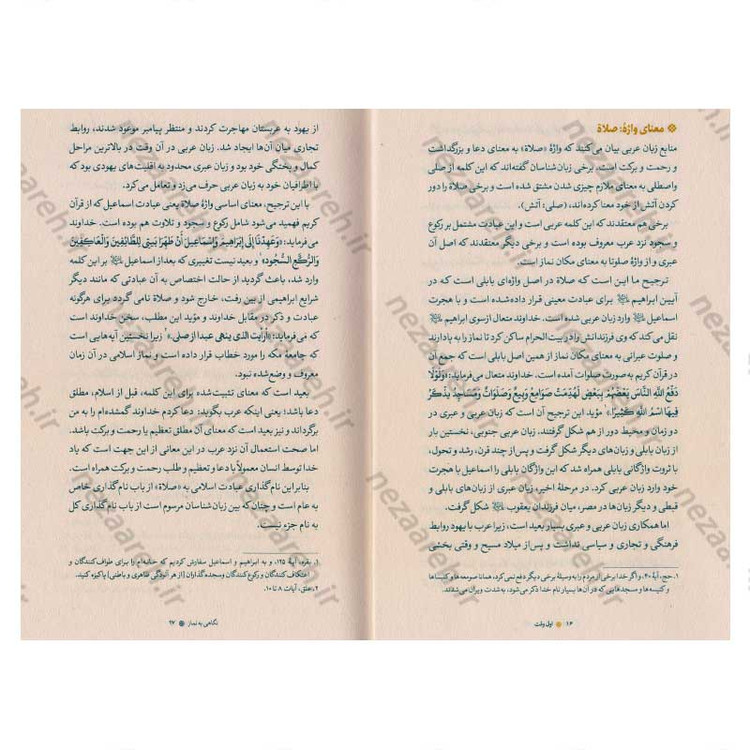 معنای واژهٔ: صلاة
منابع زبان عربی بیان می‌کنند که واژهٔ «صلاة» به معنای دعا و بزرگداشت
و رحمت و برکت است. برخی زبان‌شناسان گفته‌اند که این کلمه از صلی
واصطلی به معنای ملازم چیزی شدن مشتق شده است و برخی صلاة را دور
کردن آتش از خود معنا کرده‌اند، (صلی: آتش).
برخی هم معتقدند که این کلمه عربی است و این عبادت مشتمل بر رکوع
و سجود نزد عرب معروف بوده است و برخی دیگر معتقدند که اصل آن
عبری و از واژهٔ صلوتا به معنای مکان نماز است.
ترجیح ما این است که صلاة در اصل واژه‌ای بابلی است که در
آیین ابراهیم برای عبادت معینی قرار داده‌شده است و با هجرت
اسماعیل وارد زبان عربی شده است. خداوند متعال ازسوی ابراهیم
نقل می‌کند که وی فرزندانش را در بیت‌الحرام ساکن کرد تا نماز را به پا دارند
و صلوت عبرانی به معنای مکان نماز از همین اصل بابلی است که جمع آن
در قرآن کریم به‌صورت صلوات آمده است. خداوند متعال می‌فرماید: «وَلَوْلَا
دَفْعُ اللَّهِ النَّاسَ بَعْضَهُمْ بِبَعْضٍ لَهُدِّمَتْ صَوَامِعُ وَبِيَعٌ وَصَلَوَاتٌ وَمَسَاجِدُ يُذْكَرُ
فِيهَا اسْمُ اللَّهِ كَثِيرًا»¹ مؤید این ترجیح آن است که زبان عربی و عبری در
دو زمان و محیط دور از هم شکل گرفتند. زبان عربی جنوبی، نخستین بار
از زبان بابلی و زبان‌های دیگر شکل گرفت و پس از چند قرن، رشد و تحول،
با ثروت واژگانی بابلی همراه شد که این واژگان بابلی را اسماعیل با هجرت
خود وارد زبان عربی کرد. در مرحلهٔ اخیر، زبان عبری از زبان‌های بابلی و
دیگر زبان‌ها در مصر، میان فرزندان یعقوب شکل گرفت.
اما همکاری زبان عربی و عبری بسیار بعید است، زیرا عرب با یهود روابط
فرهنگی و تجاری و سیاسی نداشت و پس از میلاد مسیح و وقتی بخشی
۱. حج، آیهٔ ۴۰. و اگر خدا برخی از مردم را به وسیلهٔ برخی دیگر دفع نمی‌کرد، همانا صومعه‌ها و کنیسه‌ها
و کنیسه‌ها و مسجدهایی که در آن‌ها بسیار نام خدا ذکر می‌شود، به‌شدت ویران می‌شدند.
۱۶ اول وقت
از یهود به عربستان مهاجرت کردند و منتظر پیامبر موعود شدند، روابط
تجاری میان آن‌ها ایجاد شد. زبان عربی در آن وقت در بالاترین مراحل
کمال و پختگی خود بود و زبان عبری محدود به اقلیت‌های یهودی بود که
با اطرافیان خود به زبان عربی حرف می‌زد و تعامل می‌کرد.
با این ترجیح، معنای اساسی واژهٔ صلاة یعنی عبادت اسماعیل که از قرآن
کریم فهمید می‌شود شامل رکوع و سجود و تلاوت هم بوده است. خداوند
می‌فرماید: «وَعَهِدْنَا إِلَى إِبْرَاهِيمَ وَإِسْمَاعِيلَ أَنْ طَهِّرَا بَيْتِيَ لِلطَّائِفِينَ وَالْعَاكِفِينَ
وَالرُّكَّعِ السُّجُودِ»¹ و بعید نیست تغییری که بعد از اسماعیل بر این کلمه
وارد شد، باعث گردید از حالت اختصاص به آن عبادتی که مانند دیگر
شرایع ابراهیمی از بین رفت، خارج شود و صلاة نامی گردد برای هرگونه
عبادت و ذکر در مقابل خداوند و مؤید این مطلب، سخن خداوند است
که می‌فرماید: «أرأيت الذي ينهى عبدا إذا صلى»² زیرا نخستین آیه‌هایی است
که جامعه مکه را مورد خطاب قرار داده است و نماز اسلامی در آن زمان
معروف و وضع‌شده نبود.
بعید است که معنای تثبیت‌شده برای این کلمه، قبل از اسلام، مطلق
دعا باشد؛ یعنی اینکه عرب بگوید: دعا کردم خداوند گمشده‌ام را به من
برگرداند و نیز بعید است که معنای آن مطلق تعظیم یا رحمت و برکت باشد.
اما صحت استعمال آن نزد عرب در این معانی از این جهت است که یاد
خدا توسط انسان معمولاً با دعا و تعظیم و طلب رحمت و برکت همراه است.
بنابراین نام‌گذاری عبادت اسلامی به «صلاة» از باب نام‌گذاری خاص
به عام است و چنان‌که بین زبان‌شناسان مرسوم است از باب نام‌گذاری کل
به نام جزء نیست.
۱. بقره، آیهٔ ۱۲۵. و به ابراهیم و اسماعیل سفارش کردیم که خانه‌ام را برای طواف‌کنندگان و
اعتکاف‌کنندگان و رکوع‌کنندگان و سجده‌گذاران [از هر آلودگی ظاهری و باطنی] پاکیزه کنید.
۲. علق، آیات ۸ تا ۱۰.
نگاهی به نماز ۱۷
nezaareh.ir